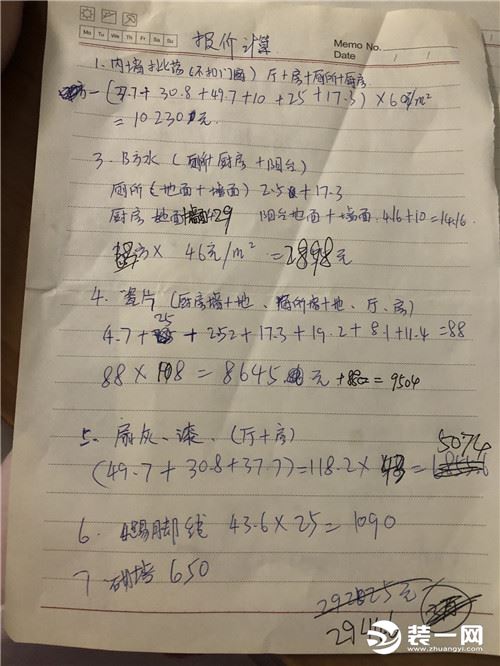 Mo Tu We Th Fr Sa Su
报价计算
Memo No.
Date / /
1. 内墙批荡(不扣门窗) 厅+房+厕所+厨房
(37.7+30.8+49.7+10+25+17.3)×60元/m²
=10230元
3. 防水(厕所厨房+阳台)
厕所(地面+墙面) 25+17.3
厨房地面+29 阳台地面+墙面 4.16+10=14.16
方× 46元/m² =2898元
4. 瓷片(厨房墙+地、厕所墙+地、厅、房)
25
4.7+ +252+17.3+19.2+8.1+11.4=88
88×108=8645元+880=9504
5. 扇灰、漆、(厅+房)
5074
(49.7+30.8+37.7)=118.2×43=
6. 踢脚线 43.6×25=1090
7 砌墙 650
元
294
装一网
www.zhuangyi.com